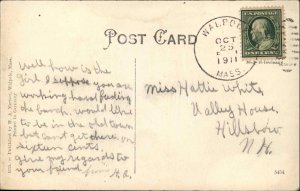 POST CARD
WALPOLE
OCT
25
1911
MASS.
U.S. POSTAGE
ONE CENT
well how is the
girl I suppose you are
working hard feeding
the bunch, would like
to be in the old town
but can't get there on
sixteen cents
give my regards to
your friend from
H.R.
Miss Hattie White
Valley House,
Hillsboro
N.H.